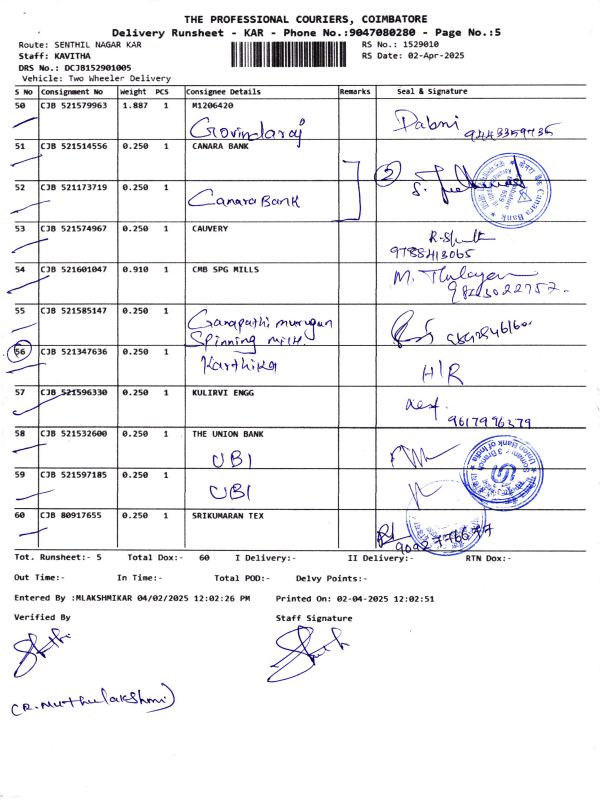 THE PROFESSIONAL COURIERS, COIMBATORE
Delivery Runsheet - KAR - Phone No.:9047080280 - Page No.:5
Route: SENTHIL NAGAR KAR RS No.: 1529010
Staff: KAVITHA RS Date: 02-Apr-2025
DRS No.: DCJB152901005
Vehicle: Two Wheeler Delivery
S No Consignment No Weight PCS Consignee Details Remarks Seal & Signature
50 CJB 521579963 1.887 1 M1206420
Govindaraj
51 CJB 521514556 0.250 1 CANARA BANK
52 CJB 521173719 0.250 1
Canara Bank
Canara Bank
53 CJB 521574967 0.250 1 CAUVERY
9788413065
54 CJB 521601047 0.910 1 CMB SPG MILLS
55 CJB 521585147 0.250 1
Ganapathi murugan
Spinning mill.
56 CJB 521347636 0.250 1 Karthika
H/R
57 CJB 521596330 0.250 1 KULIRVI ENGG
9617996379
58 CJB 521532600 0.250 1 THE UNION BANK
UBI
Union Bank of India
59 CJB 521597185 0.250 1
UBI
60 CJB 80917655 0.250 1 SRIKUMARAN TEX
9092776677
Tot. Runsheet:- 5 Total Dox:- 60 I Delivery:- II Delivery:- RTN Dox:-
Out Time:- In Time:- Total POD:- Delvy Points:-
Entered By :MLAKSHMIKAR 04/02/2025 12:02:26 PM Printed On: 02-04-2025 12:02:51
Verified By Staff Signature
(R. Muthulakshmi)